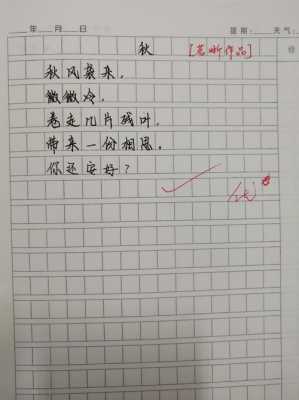 年 月 日 星期: 天气:
秋 [范昕作品]
秋风袭来,
微微冷,
卷走几片残叶,
带来一份相思,
你还安好?
优